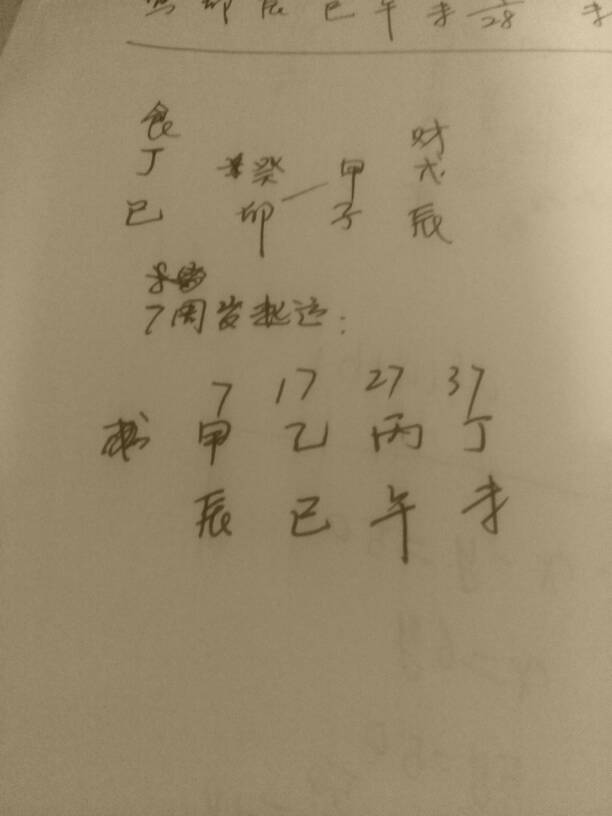 卯 辰 巳 午 未 28 未
食 财
丁 癸 甲 戊
巳 卯 子 辰
7周岁起运：
7 17 27 37
甲 乙 丙 丁
辰 巳 午 未